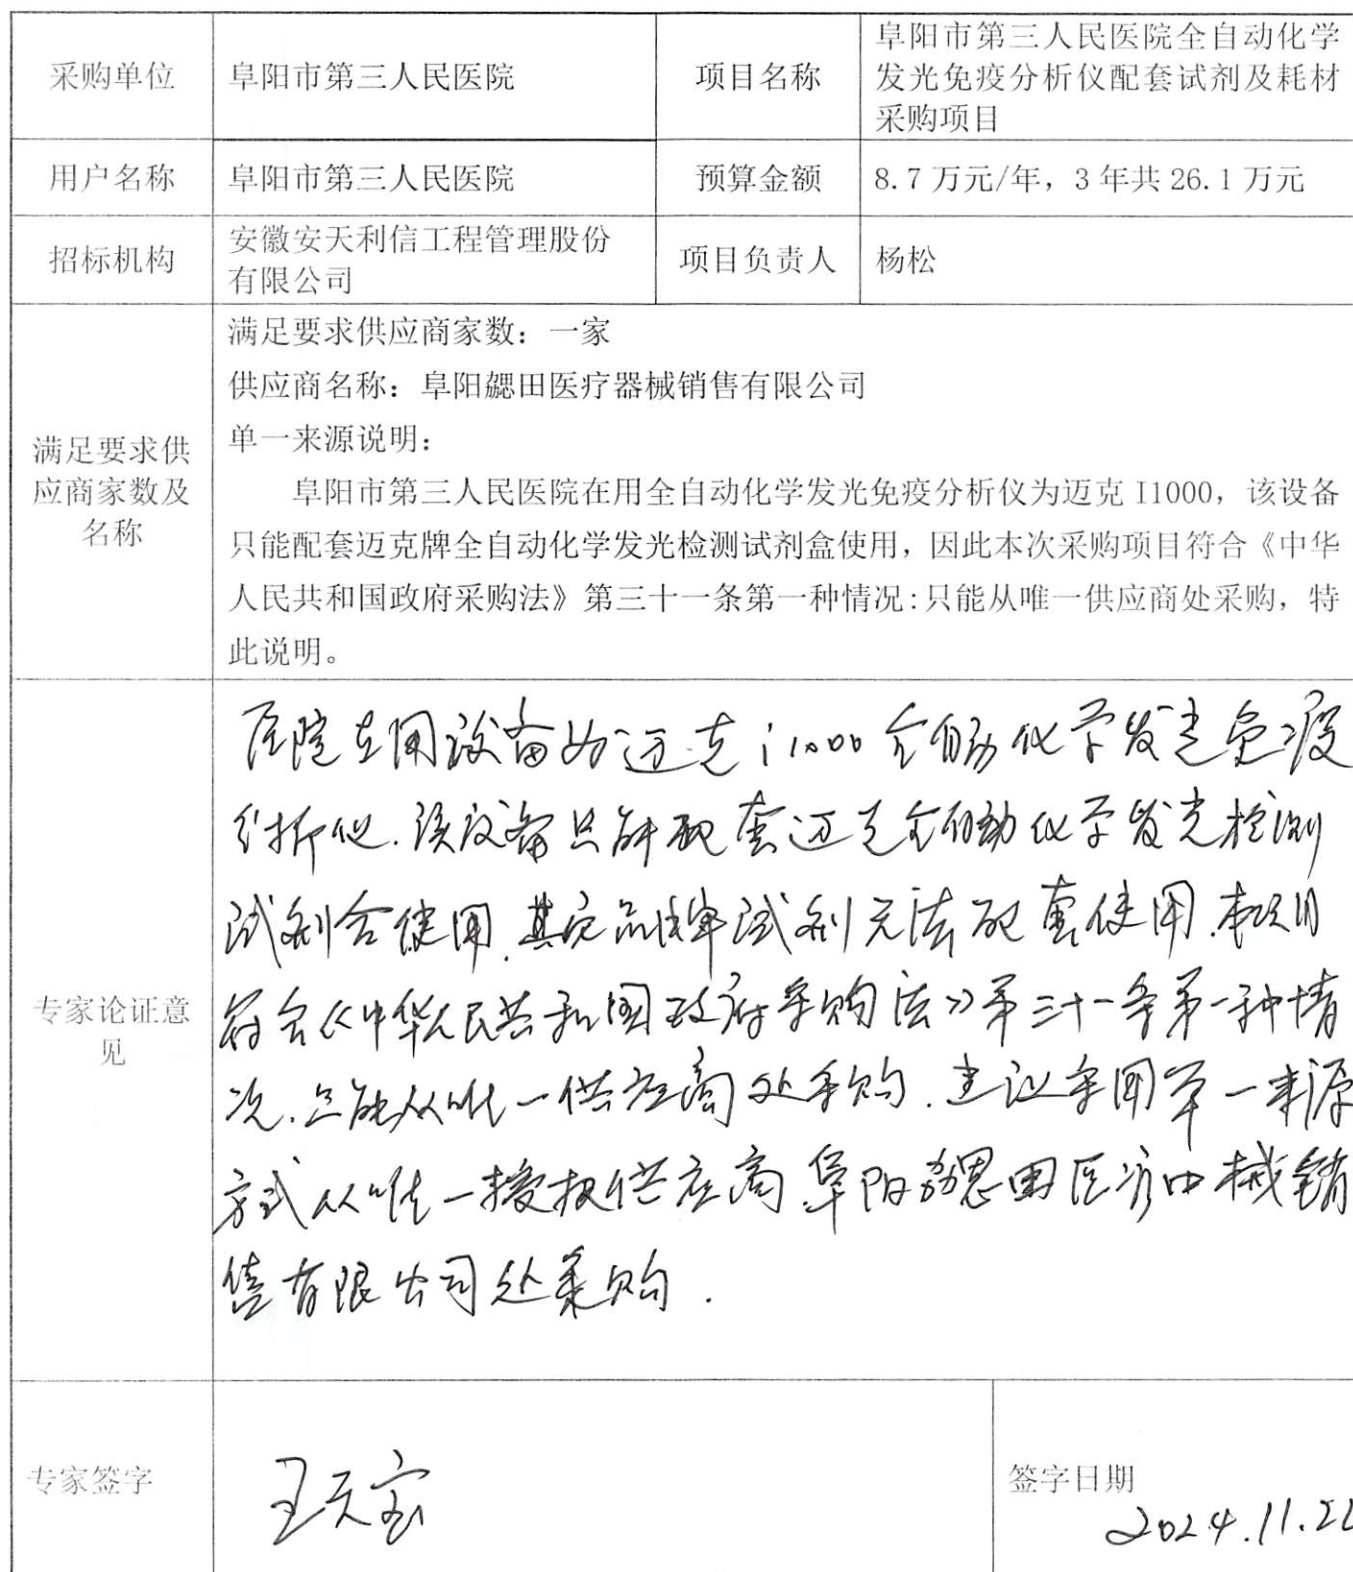 采购单位 阜阳市第三人民医院 项目名称 阜阳市第三人民医院全自动化学
发光免疫分析仪配套试剂及耗材
采购项目
用户名称 阜阳市第三人民医院 预算金额 8.7万元/年，3年共26.1万元
招标机构 安徽安天利信工程管理股份
有限公司 项目负责人 杨松
满足要求供
应商家数及
名称
满足要求供应商家数：一家
供应商名称：阜阳勰田医疗器械销售有限公司
单一来源说明：
阜阳市第三人民医院在用全自动化学发光免疫分析仪为迈克 I1000，该设备
只能配套迈克牌全自动化学发光检测试剂盒使用，因此本次采购项目符合《中华
人民共和国政府采购法》第三十一条第一种情况:只能从唯一供应商处采购，特
此说明。
专家论证意
见
医院在用设备为迈克i1000全自动化学发光免疫
分析仪.该设备只能配套迈克全自动化学发光检测
试剂合使用.其它品牌试剂无法配套使用.本项目
符合《中华人民共和国政府采购法》第三十一条第一种情
况.只能从唯一供应商处采购.建议采用单一来源
方式从唯一授权供应商阜阳勰田医疗器械销
售有限公司处采购.
专家签字 王天宝 签字日期
2024.11.22